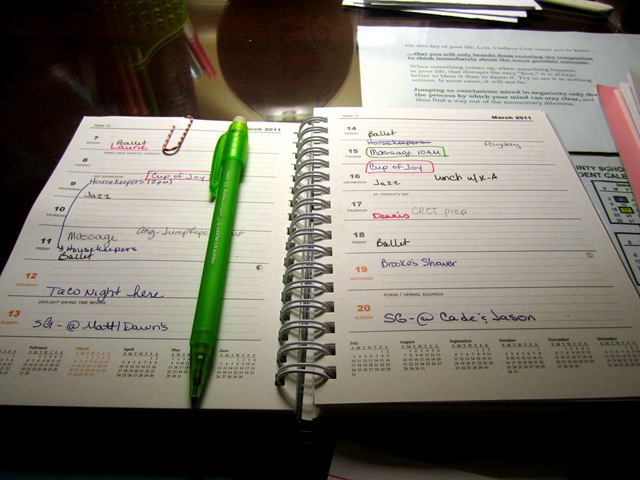 March 2011
7
MONDAY
Ballet
Laurie
8
TUESDAY
Cup of Joy
9
Housekeepers (2pm)
Jazz
10
THURSDAY
Massage
11
FRIDAY
Housekeepers
Ballet
12
SATURDAY
Taco Night here
DAYLIGHT SAVING TIME BEGINS
13
SUNDAY
SG-@ Matt/Dawn's
February
March
April
May
June
March 2011
14
MONDAY
Ballet
Housekeepers
15
TUESDAY
Massage 10AM
Cup of Joy
16
WEDNESDAY
Jazz
Lunch w/K-A
ST. PATRICK'S DAY
17
THURSDAY
Dennis CRCT prep
18
FRIDAY
Ballet
19
SATURDAY
Brooke's Shower
PURIM / VERNAL EQUINOX
20
SUNDAY
SG-@ Cade & Jason
July
August
September
October
November
December
On this day of your life, Lori, I believe God wants you to know...
...that you will only benefit from resisting the temptation
to think immediately about the worst possible outcome.
When something comes up, when something happens
in your life, that disrupts the easy "flow," it is always
better to bless it than to damn it. Try to see it as nothing
serious. It most cases, it will not be.
Jumping to conclusions mired in negativity only
the process by which your mind can stay clear, and
thus find a way out of the momentary dilemma.